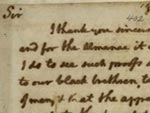 Sir
I thank you sincere
and for the Almanac it
I do to see such proofs a
to our black brethren, t
of men, & that the appea